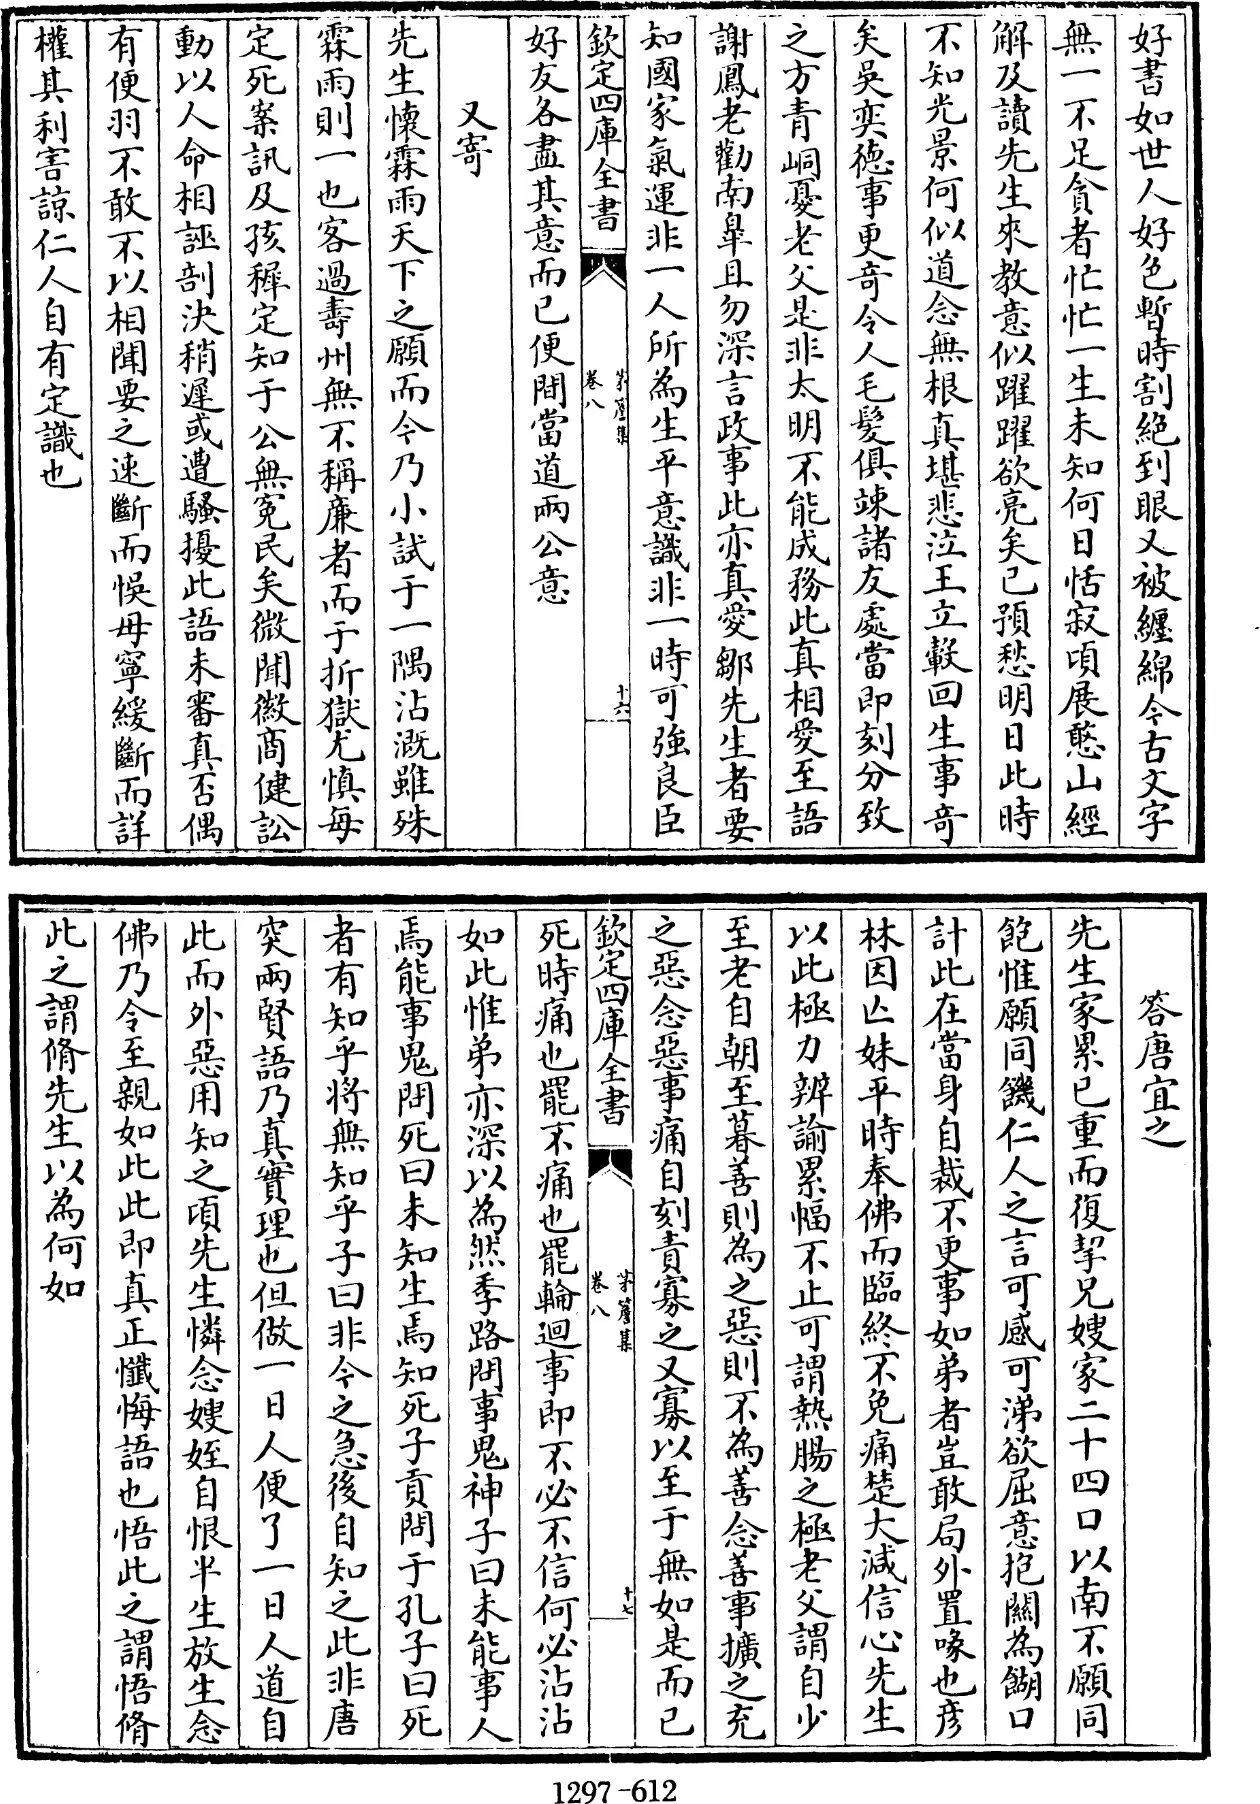 好書如世人好色暫時割絶到眼又被纏綿今古文字
無一不足貪者忙忙一生未知何日恬寂頃展憨山經
解及讀先生來教意似躍躍欲亮矣已預愁明日此時
不知光景何似道念無根真堪悲泣王立轂回生事奇
矣吳奕德事更奇令人毛髮俱竦諸友處當即刻分致
之方青峒憂老父是非太明不能成務此真相愛至語
謝鳳老勸南臯且勿深言政事此亦真愛鄒先生者要
知國家氣運非一人所為生平意識非一時可強良臣
欽定四庫全書
茅簷集
卷八
十六
好友各盡其意而已便間當道兩公意
又寄
先生懷霖雨天下之願而今乃小試于一隅沾溉雖殊
霖雨則一也客過壽州無不稱廉者而于折獄尤慎每
定死案訊及孩穉定知于公無冤民矣微聞徽商健訟
動以人命相誣剖決稍遲或遭騷擾此語未審真否偶
有便羽不敢不以相聞要之速斷而悞毋寧緩斷而詳
權其利害諒仁人自有定識也
答唐宜之
先生家累已重而復挈兄嫂家二十四口以南不願同
飽惟願同饑仁人之言可感可涕欲屈意抱關為餬口
計此在當身自裁不更事如弟者豈敢局外置喙也彦
林因亡妹平時奉佛而臨終不免痛楚大減信心先生
以此極力辨諭累幅不止可謂熱腸之極老父謂自少
至老自朝至暮善則為之惡則不為善念善事擴之充
之惡念惡事痛自刻責寡之又寡以至于無如是而已
欽定四庫全書
茅簷集
卷八
十七
死時痛也罷不痛也罷輪迴事即不必不信何必沾沾
如此惟弟亦深以為然季路問事鬼神子曰未能事人
焉能事鬼問死曰未知生焉知死子貢問于孔子曰死
者有知乎將無知乎子曰非今之急後自知之此非唐
突兩賢語乃真實理也但做一日人便了一日人道自
此而外惡用知之頃先生憐念嫂姪自恨半生放生念
佛乃令至親如此此即真正懺悔語也悟此之謂悟脩
此之謂脩先生以為何如
1297-612